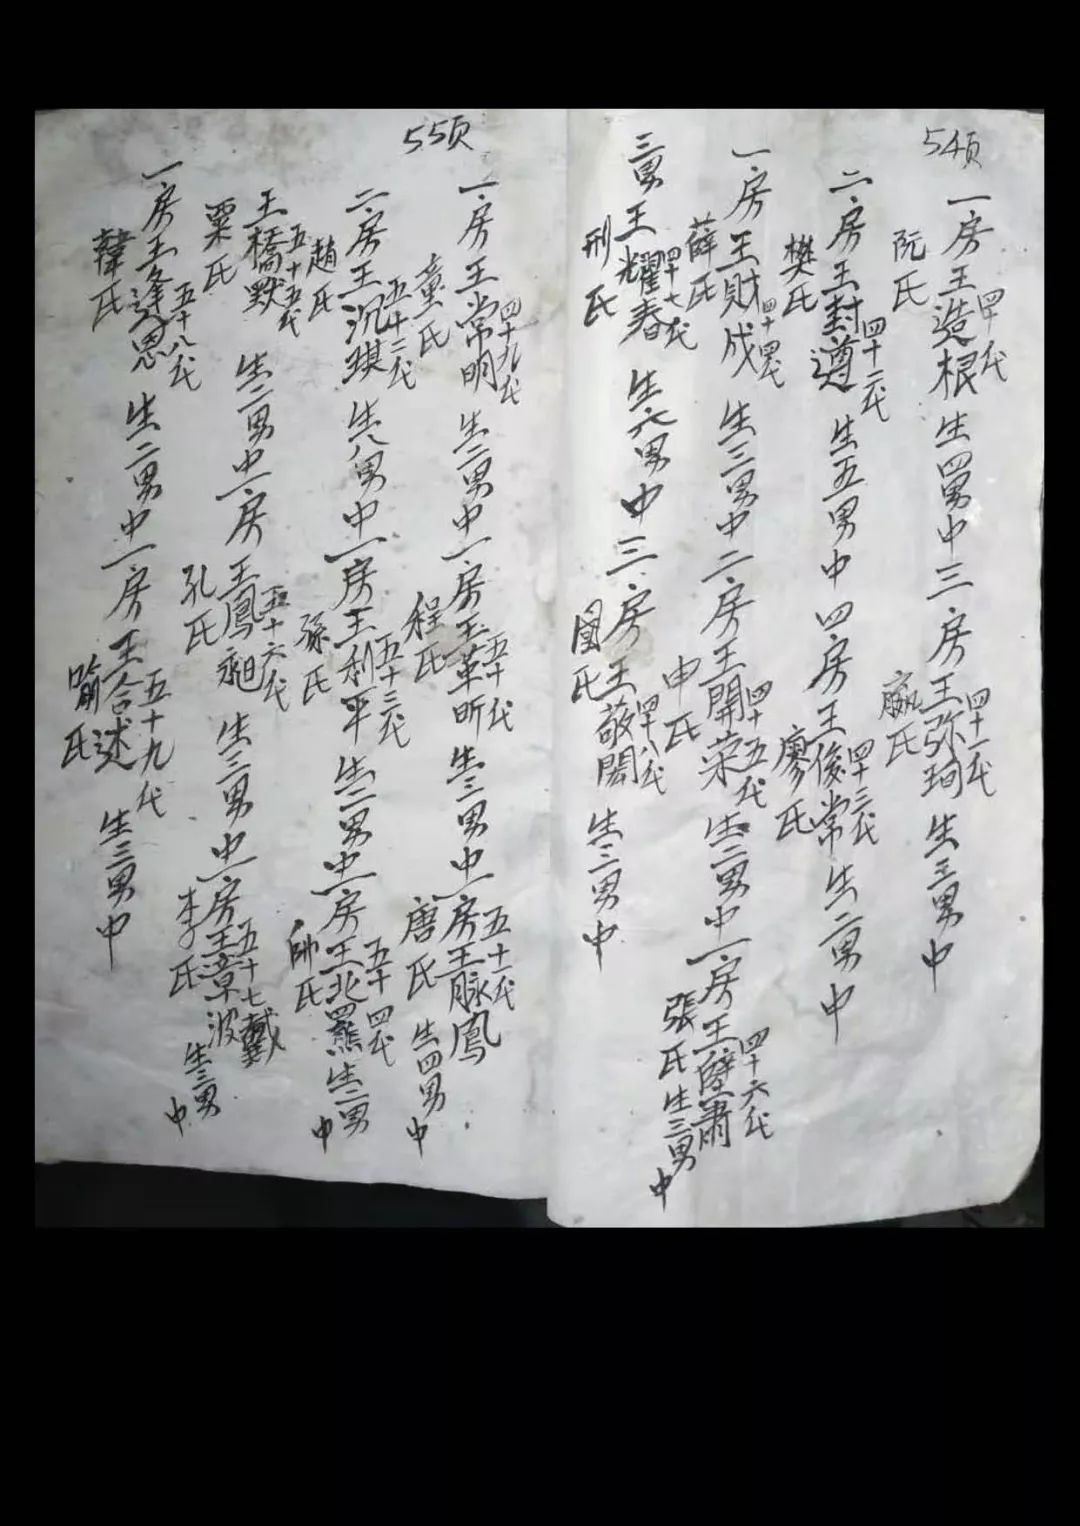 54页
一房王造根四十代阮氏生四男中三房王弥琦四十一代嬴氏生三男中
二房王封遵四十二代樊氏生五男中四房王俊常四十三代廖氏生二男中
一房王财成四十四代薛氏生三男中二房王開荣四十五代申氏生二男中一房王壁肅四十六代張氏生三男中
三男王耀春四十七代刑氏生六男中三房王敬閣四十八代国氏生三男中
55页
一房王常明四十九代童氏生二男中一房王革昕五十代程氏生三男中一房王脉鳳五十一代唐氏生四男中
二房王沉琪五十二代趙氏生八男中一房王利平五十三代孫氏生二男中一房王北羆五十四代帥氏生二男中
王橋默五十五代粟氏生二男中一房王鳳昶五十六代孔氏生三男中一房王章波五十七戴李氏生三男中
一房王逢恩五十八代韓氏生二男中一房王合述五十九代喻氏生三男中